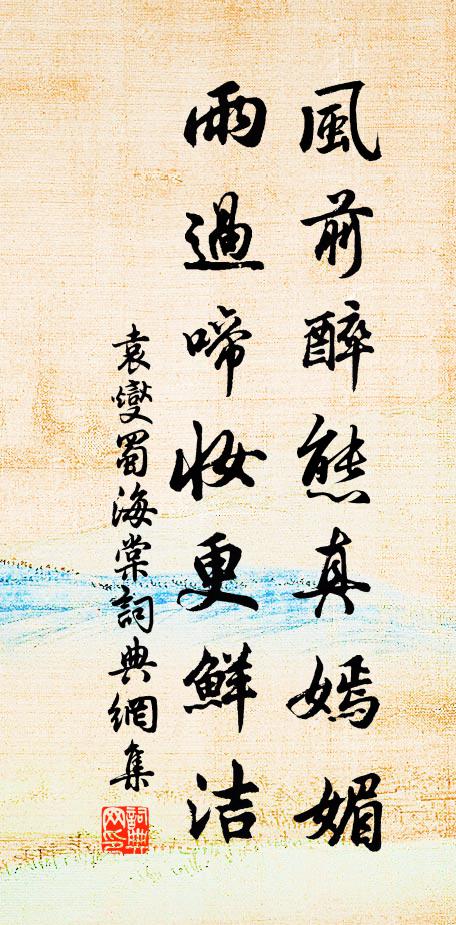 風前醉態真嫣媚
雨過啼妝更鮮洁
袁燮蜀海棠詞典網集
詞典网